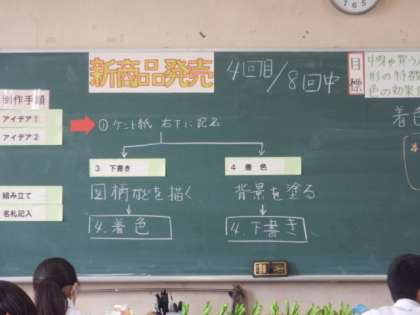 新商品発売
4回目/8回中
目標
制作手順
アイデア1
アイデア2
組み立て
名札記入
①ケント紙 右下に記名
3 下書き
4 着色
図柄などを描く
背景を塗る
4.着色
4.下書き
形の特徴
色の効果
着色